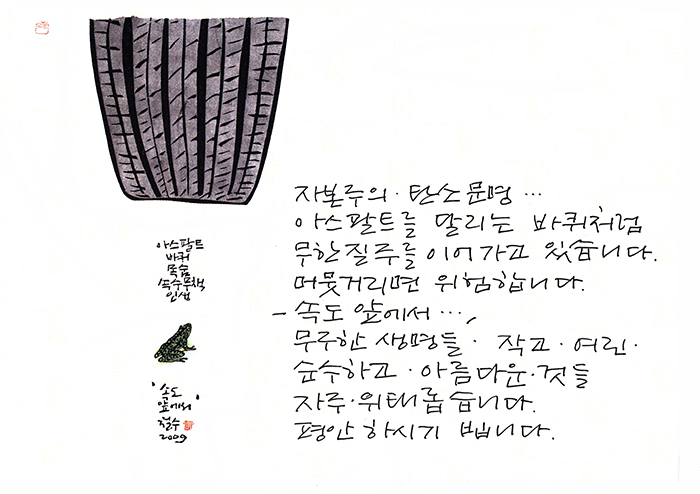 자본주의·탄소문명…
아스팔트를 달리는 바퀴처럼
무한질주를 이어가고 있습니다.
머뭇거리면 위험합니다.
- 속도 앞에서…,
무구한 생명들· 작고·여린·
순수하고·아름다운·것들
자주·위태롭습니다.
평안하시기 빕니다.
아스팔트
바퀴
목숨
속수무책
인생
'속도
앞에서'
철수
2009